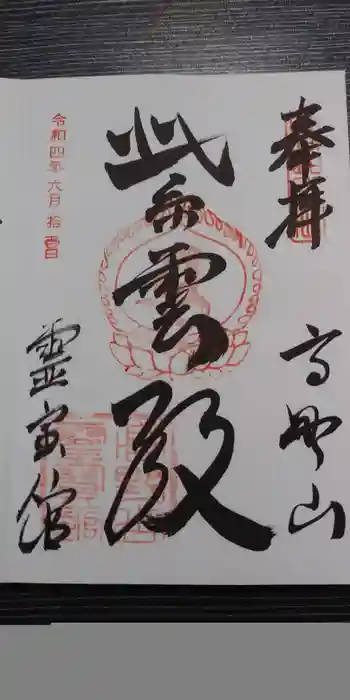 奉拝
高野山
紫雲殿
霊宝館
令和四年六月拾四日